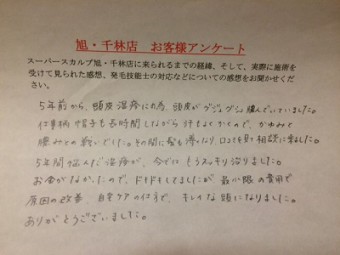 旭・千林店　お客様アンケート
スーパースカルプ旭・千林に来られるまでの経緯、そして、実際に施術を
受けて見られた感想、発毛技能士の対応などについての感想をお聞かせくだ
さい。
5年前から、頭皮湿疹に 頭皮がグジュグジュ 膿んでいていました。
仕事柄 帽子も長時間しながら 汗もよくかくので、かゆみと
痛みとの戦いでした。その間に髪も薄くなり、 相談に来ました。
5年間悩んだ湿疹が、今では もうスッキリ治りました。
お金がなかったので、ドキドキしてましたが 最小限の費用で
原因の改善、自宅ケアの仕方で、キレイな頭になりました。
ありがとうございました。